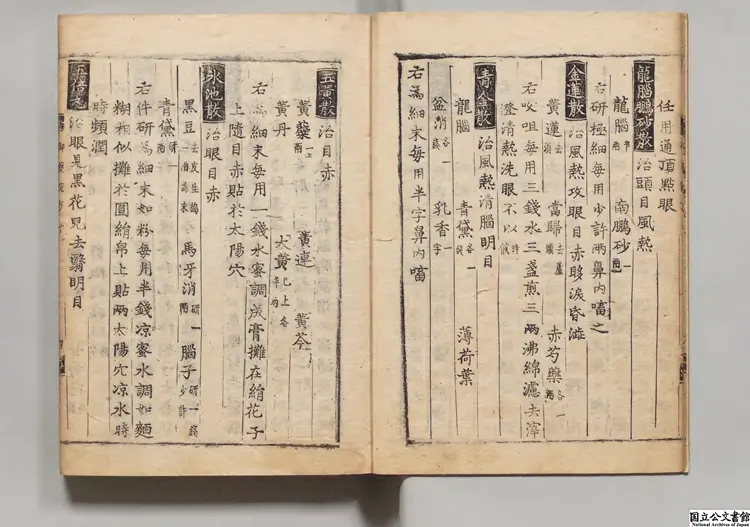 任用通頂點眼
龍腦鵬砂散 治頭目風熱
龍腦 半兩 南鵬砂 一兩
右研極細每用少許兩鼻內㗜之
金蓮散 治風熱攻眼目赤眵淚昏澁
黃連 去須 當歸 去蘆 赤芍藥 各一兩
右㕮咀每用三錢水三盞煎三兩沸綿濾去滓
澄清熱洗眼不以時候
青金散 治風熱清腦明目
龍腦 青黛 各一錢 薄荷葉
盆消 各一錢 乳香 一字
右為細末每用半字鼻內㗜
玉黃散 治目赤
黃蘗 一兩 黃連 黃芩
黃丹 大黃 已上各半兩
右為細末每用一錢水蜜調成膏攤在絹花子
上隨目赤貼於太陽穴
氷池散 治眼目赤
黑豆 去皮生搗為末 一兩 馬牙消 研一兩 腦子 研一錢少許
青黛 研一兩
右件研為細末如粉每用半錢涼蜜水調如麵
糊相似攤於圓絹帛上貼兩太陽穴涼水時
時頻潤
治眼見黑花兒去翳明目
国立公文書館
National Archives of Japan